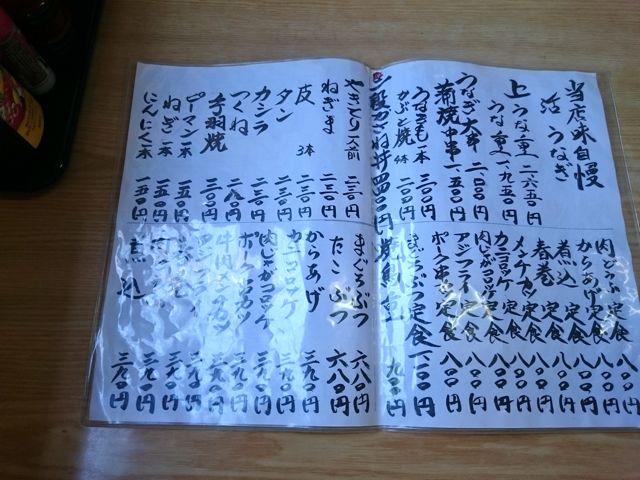 当店味自慢
活うなぎ
上うな重 二、六五〇円
うな重 一、九五〇円
うなぎ大串 二、〇〇〇円
蒲焼中串 一、五〇〇円
うなきも一本 二〇〇円
かぶと焼 二〇〇円
肉
からあげ定食 八〇〇円
煮込定食 八〇〇円
春巻定食 八〇〇円
メンチカツ定食 八〇〇円
カニコロッケ定食 八〇〇円
肉じゃがコロッケ定食 八〇〇円
アジフライ定食 八〇〇円
ポーク 定食 八〇〇円
まぐろぶつ定食 一、〇〇〇円
焼鳥重 九〇〇円
やきとり一人前 二三〇円
ねぎま 二三〇円
皮 3本 二三〇円
タン 二三〇円
カシラ 二三〇円
つくね 二八〇円
手羽焼 三〇〇円
ピーマン一本 一五〇円
ねぎ一本 一五〇円
にんにく一本 一五〇円
まぐろぶつ 六八〇円
たこぶつ 六八〇円
からあげ 三九〇円
カニコロッケ 三九〇円
肉じゃがコロッケ 三九〇円
ポーク カツ 三九〇円
三九〇円
三九〇円
三九〇円
三九〇円
煮込 三九〇円